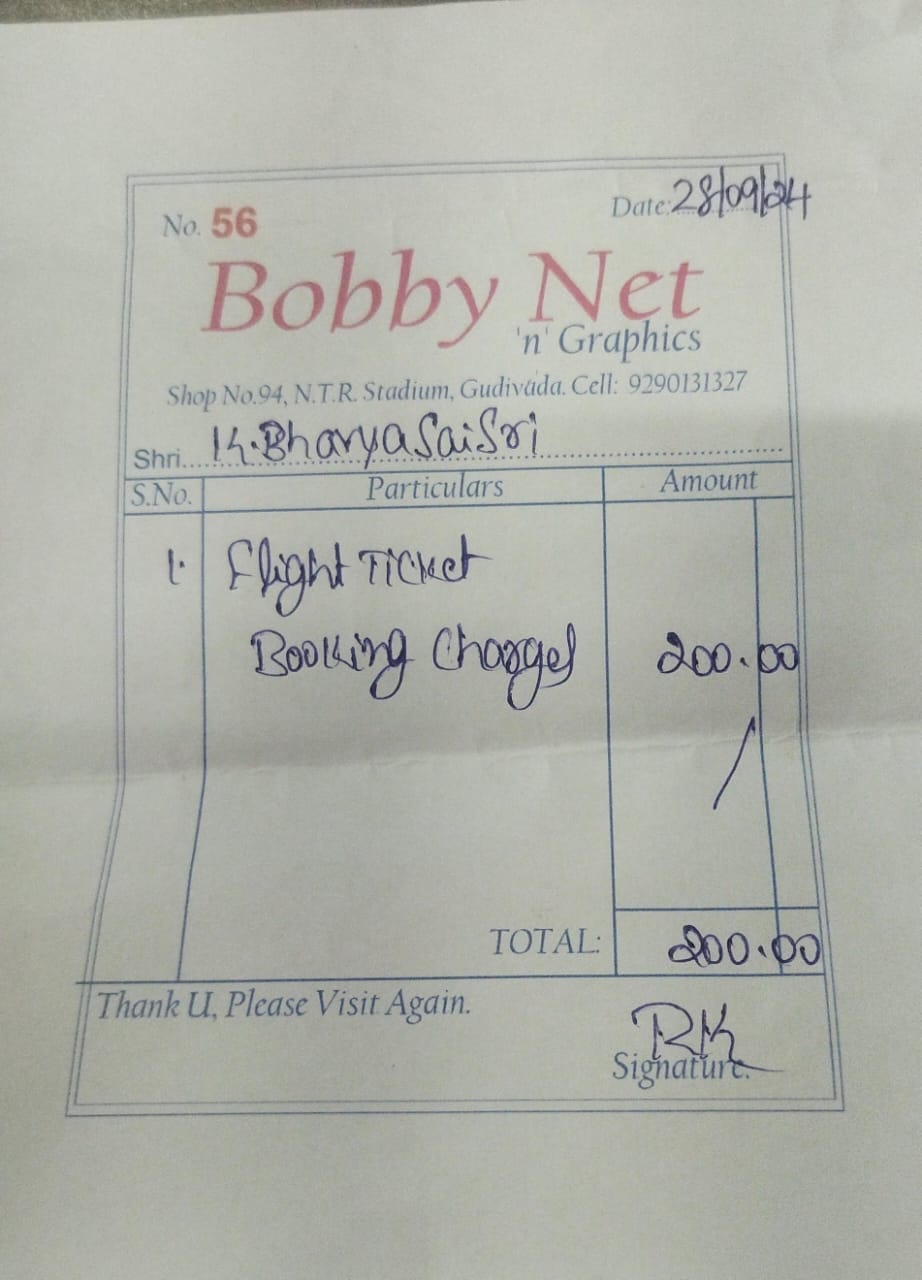 No. 56
Date: 28/09/24
Bobby Net
'n' Graphics
Shop No.94, N.T.R. Stadium, Gudivada. Cell: 9290131327
Shri.... K. Bhavya Sai Sri
S.No. Particulars Amount
1. Flight Ticket
Booking Charges 200.00
TOTAL: 200.00
Thank U, Please Visit Again.
RK
Signature.